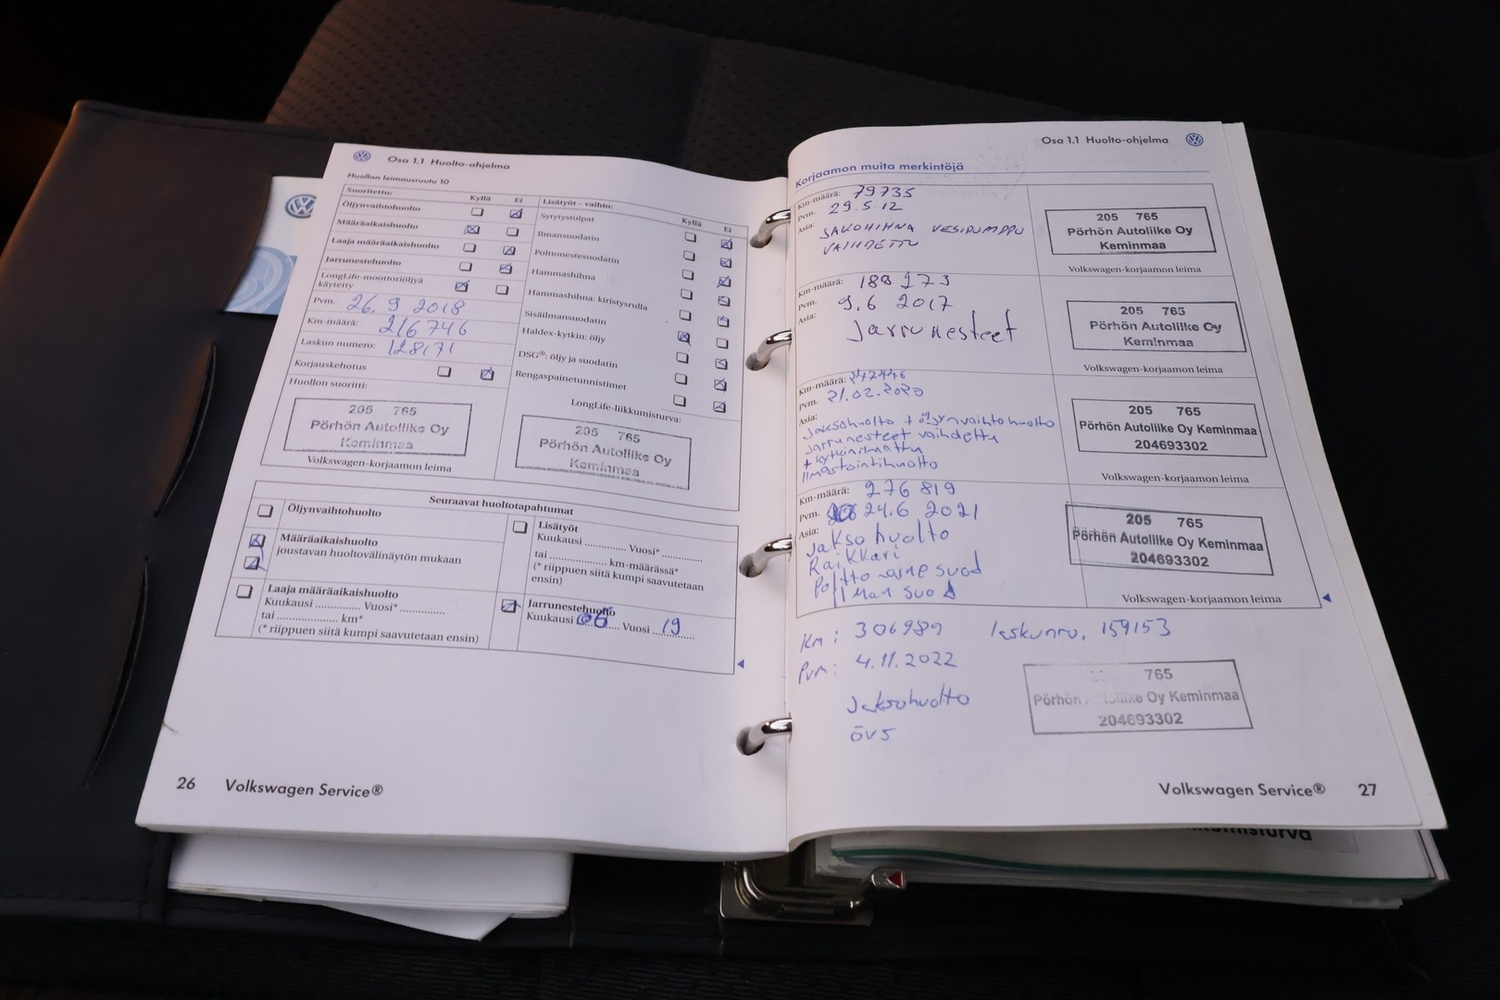 Osa 1.1 Huolto-ohjelma
Huollon leimausruutu 10
Suoritettu:
Kyllä Ei
Öljynvaihtohuolto
Määräaikaishuolto
Laaja määräaikaishuolto
Jarrunestehuolto
LongLife-moottoriöljyä
käytetty
Pvm. 26.9 2018
Km-määrä: 216746
Laskun numero: 128171
Korjauskehotus
Huollon suoritti:
205 765
Pörhön Autoliike Oy
Keminmaa
Volkswagen-korjaamon leima
Lisätyöt – vaihto:
Kyllä Ei
Sytytystulpat
Ilmansuodatin
Polttonestesuodatin
Hammashihna
Hammashihna: kiristysrulla
Sisäilmansuodatin
Haldex-kytkin: öljy
DSG®: öljy ja suodatin
Rengaspainetunnistimet
LongLife-liikkumisturva:
205 765
Pörhön Autoliike Oy
Keminmaa
Seuraavat huoltotapahtumat
Öljynvaihtohuolto
Määräaikaishuolto
joustavan huoltovälinäytön mukaan
Laaja määräaikaishuolto
Kuukausi ............ Vuosi* ............
tai ............ km*
(* riippuen siitä kumpi saavutetaan ensin)
Lisätyöt
Kuukausi ............ Vuosi* ............
tai ............ km-määrässä*
(* riippuen siitä kumpi saavutetaan
ensin)
Jarrunestehuolto
Kuukausi 06 Vuosi 19
26 Volkswagen Service®
Osa 1.1 Huolto-ohjelma
Korjaamon muita merkintöjä
Km-määrä: 79735
Pvm. 29.5.12
Asia: JAKOHIHNA VESIPUMPPU
VAIHDETTU
205 765
Pörhön Autoliike Oy
Keminmaa
Volkswagen-korjaamon leima
Km-määrä: 188 173
Pvm. 9.6 2017
Asia: Jarrunesteet
205 765
Pörhön Autoliike Oy
Keminmaa
Volkswagen-korjaamon leima
Km-määrä: 242446
Pvm. 21.02.2020
Asia:
Jaksohuolto + öljynvaihtohuolto
Jarrunesteet vaihdettu
Ilmastointihuolto
205 765
Pörhön Autoliike Oy Keminmaa
204693302
Volkswagen-korjaamon leima
Km-määrä: 276 819
Pvm. 24.6 2021
Asia:
Jaksohuolto
Raikkari
Polttoaine suod
Ilman suod
205 765
Pörhön Autoliike Oy Keminmaa
204693302
Volkswagen-korjaamon leima
Km: 306989 laskunro. 159153
Pvm: 4.11.2022
Jaksohuolto
ÖVS
765
Pörhön Autoliike Oy Keminmaa
204693302
Volkswagen Service® 27